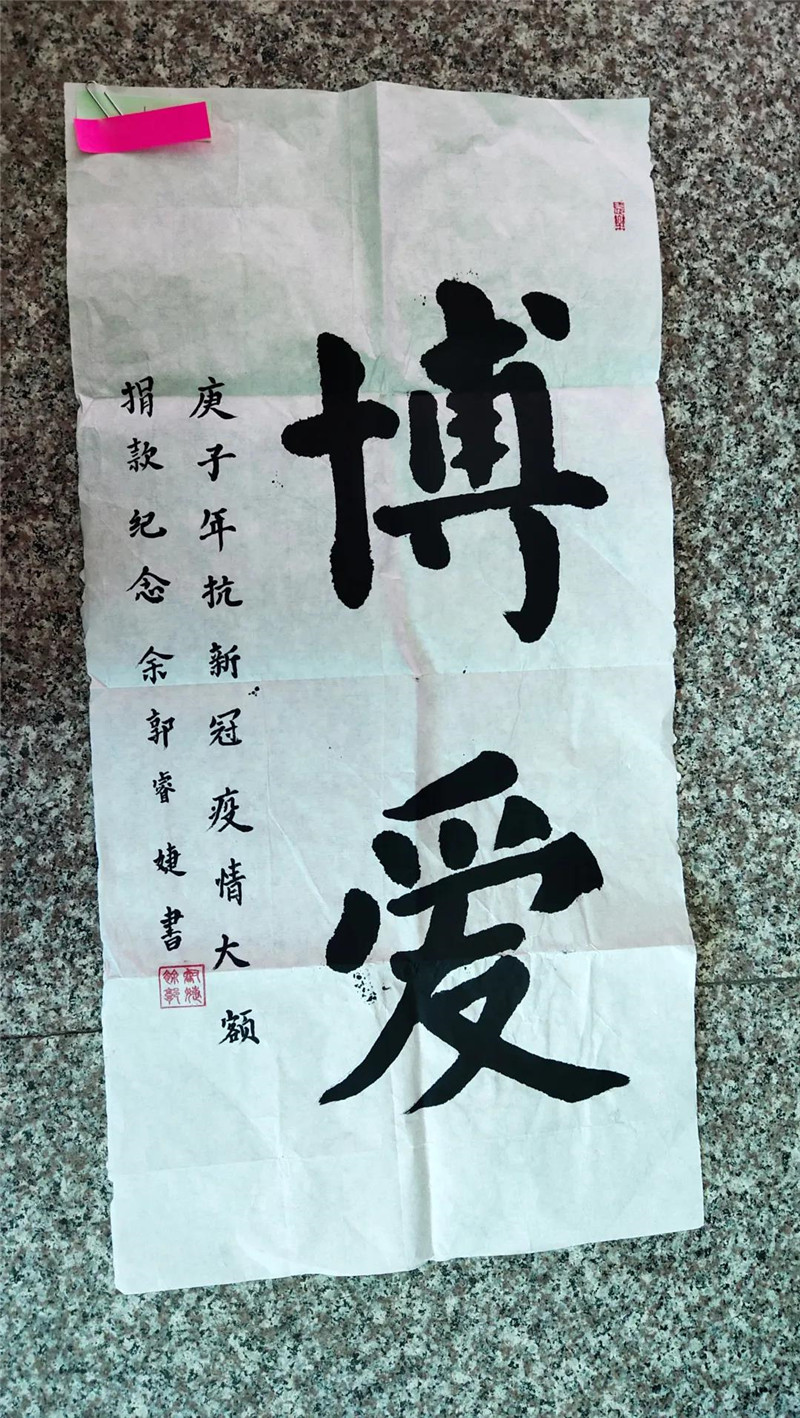 博爱
庚子年抗新冠疫情大额
捐款纪念 余郭睿婕書